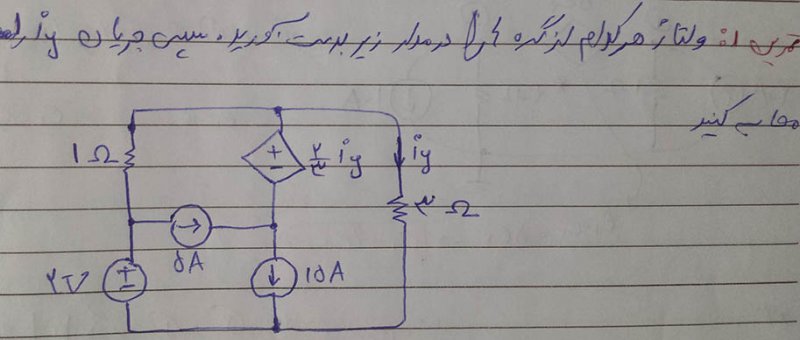 تمرین ۱: ولتاژ هر کدام از گره ها را در مدار زیر بدست آورید. سپس جریان iy را
محاسبه کنید
1Ω
+
−
۲/۳ iy
iy
۳ Ω
۵A
۲V
+
−
۱۵A